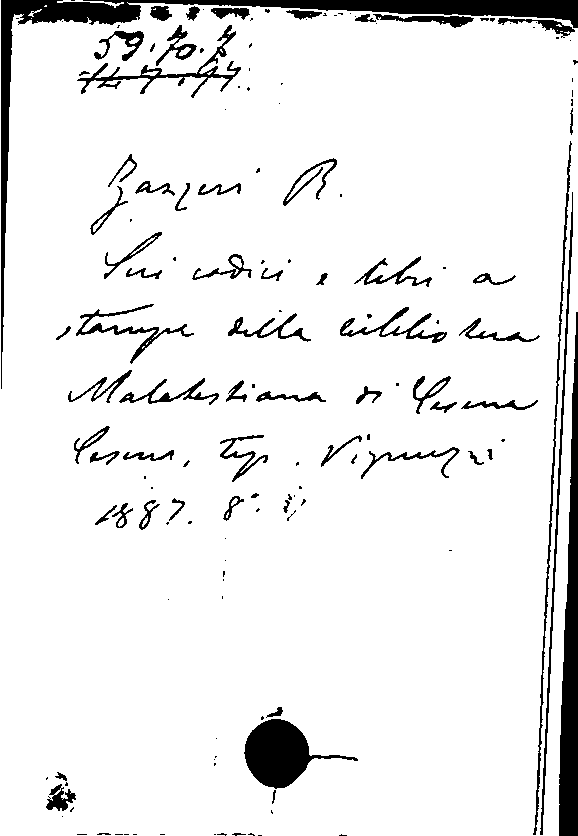 59.70.7
Zanzeri R.
Sui codici e libri a
stampa della biblioteca
Malatestiana di Cesena
Cesena, tip. Vignuzzi
1887. 8°.